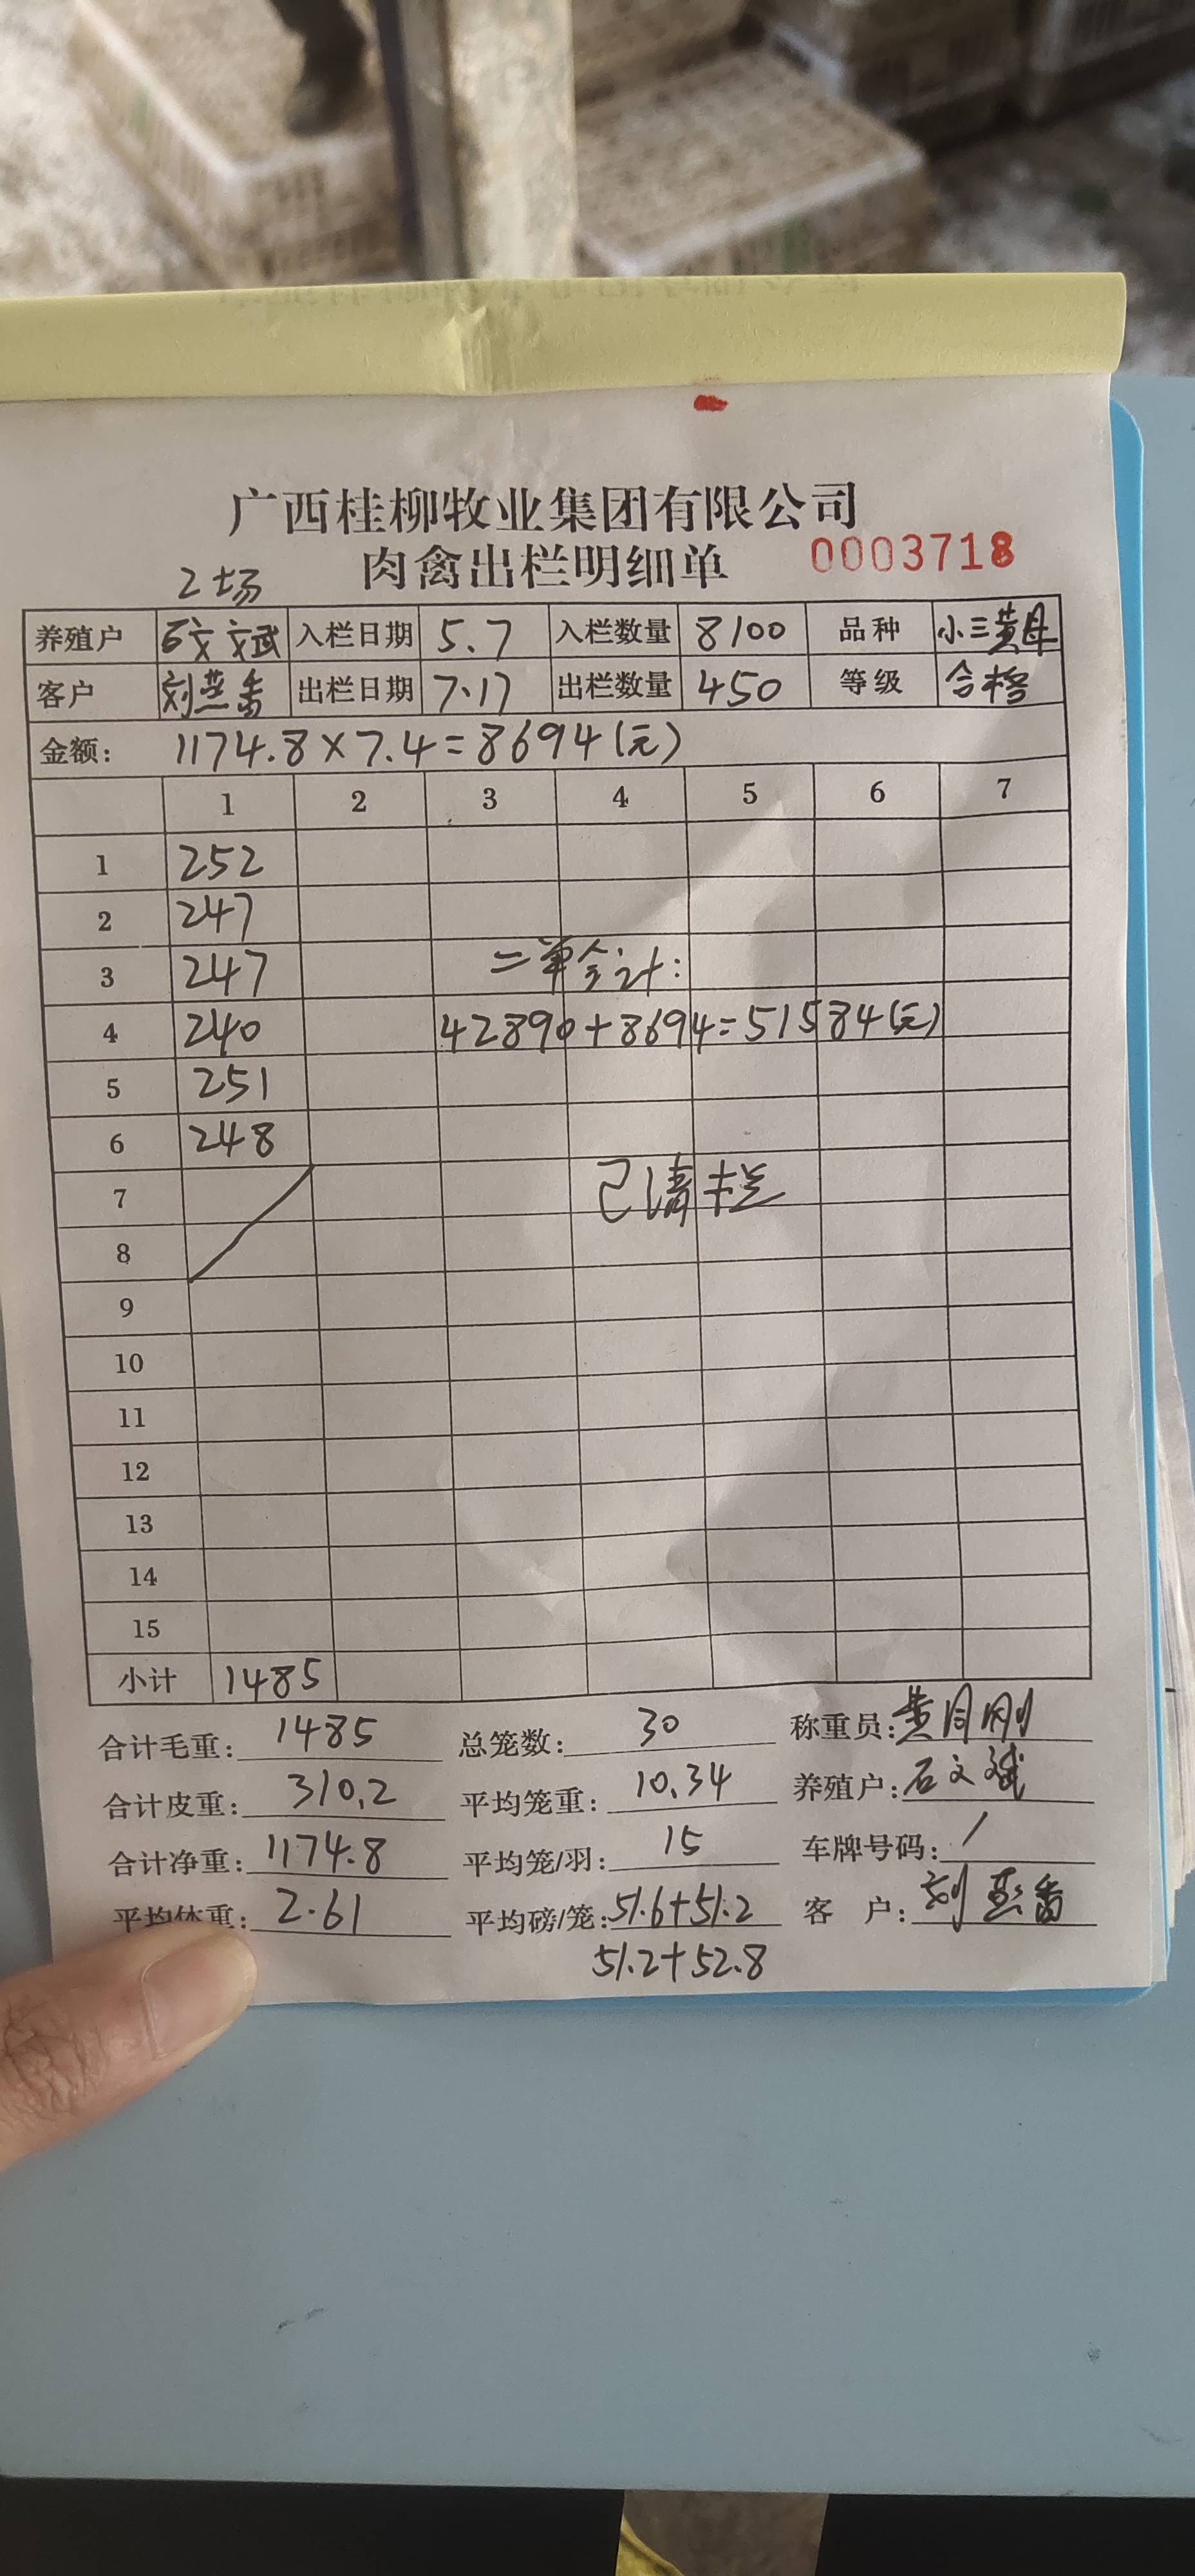 广西桂柳牧业集团有限公司
肉禽出栏明细单 0003718
2场
养殖户 石文 文斌 入栏日期 5.7 入栏数量 8100 品种 小三黄母
客户 刘燕香 出栏日期 7.17 出栏数量 450 等级 合格
金额: 1174.8×7.4=8694(元)
1 2 3 4 5 6 7
1 252
2 247
3 247 二单合计:
4 240 42890+8694=51584(元)
5 251
6 248
7 已清栏
8
9
10
11
12
13
14
15
小计 1485
合计毛重: 1485 总笼数: 30 称重员: 黄月刚
合计皮重: 310.2 平均笼重: 10.34 养殖户: 石文斌
合计净重: 1174.8 平均笼/羽: 15 车牌号码: /
平均体重: 2.61 平均磅/笼: 51.6+51.2 客 户: 刘燕香
51.2+52.8